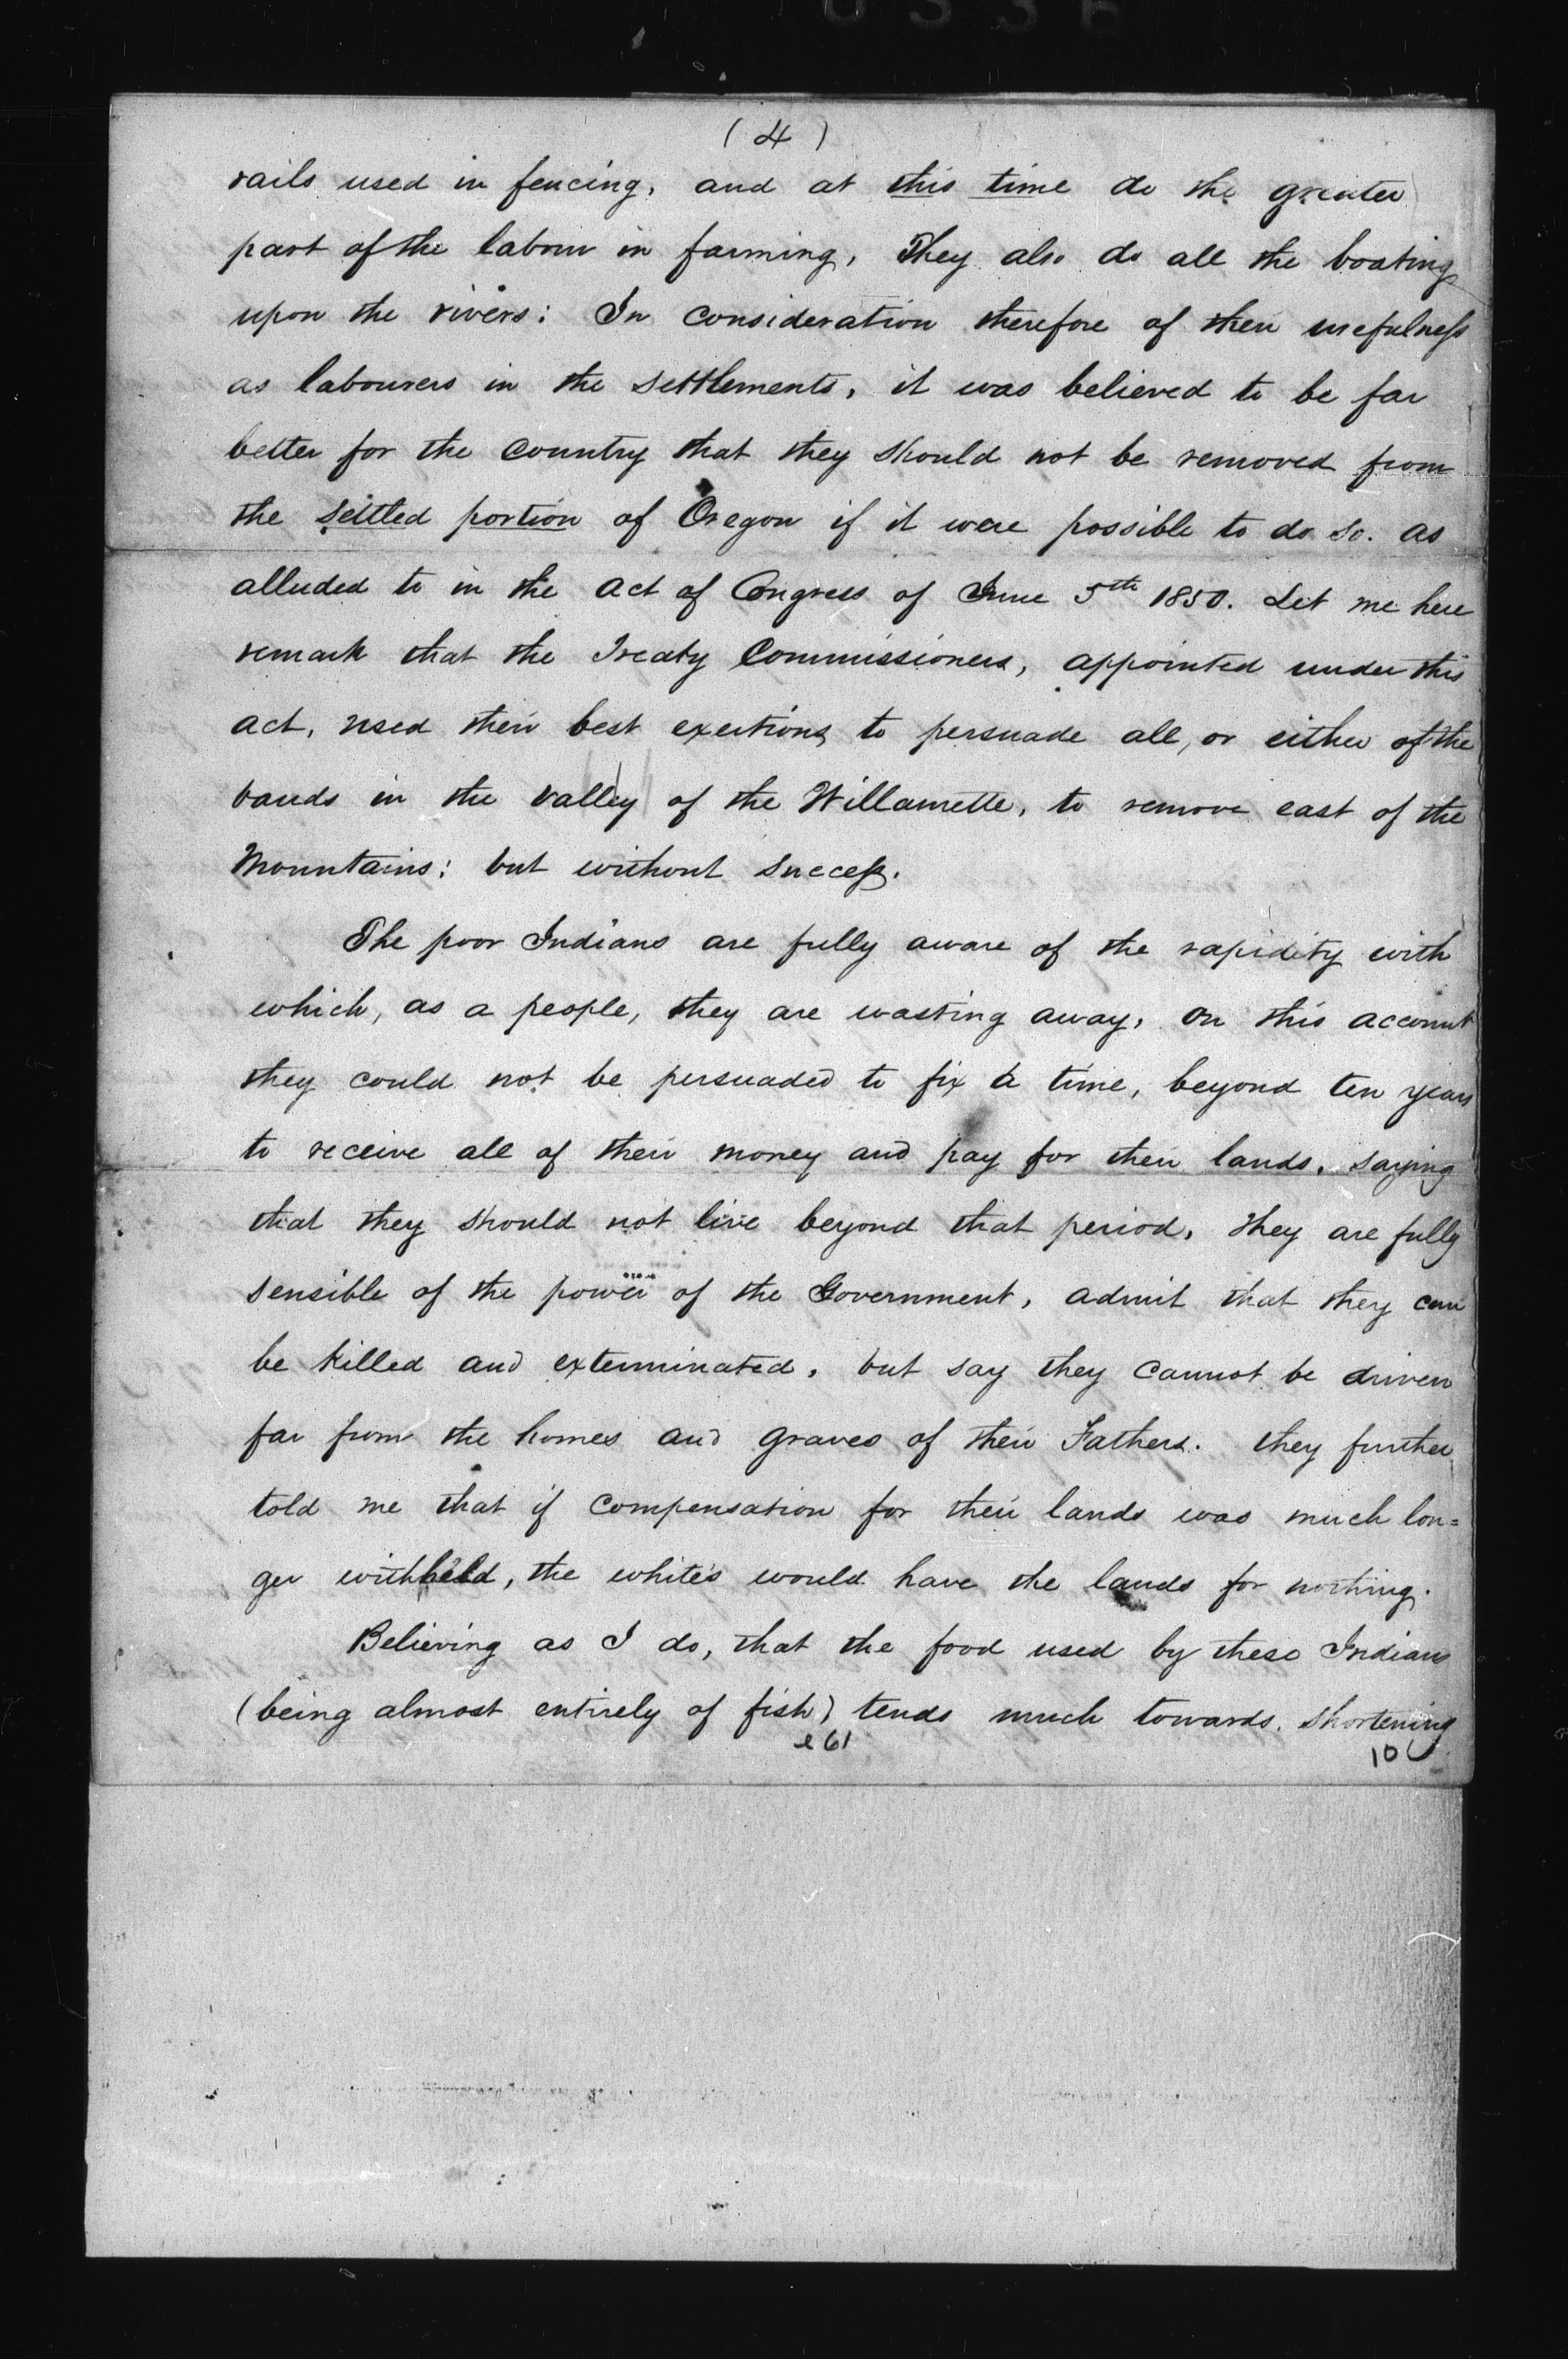 0336
( 4 )
rails used in fencing, and at this time do the greater
part of the labour in farming, They also do all the boating
upon the rivers: In consideration therefore of their usefulness
as labourers in the settlements, it was believed to be far
better for the Country that they should not be removed from
the settled portion of Oregon if it were possible to do so. as
alluded to in the act of Congress of June 5th 1850. Let me here
remark that the Treaty Commissioners, appointed under this
act, used their best exertions to persuade all, or either of the
bands in the valley of the Willamette, to remove east of the
Mountains: but without success.
The poor Indians are fully aware of the rapidity with
which, as a people, they are wasting away, on this account
they could not be persuaded to fix a time, beyond ten years
to receive all of their money and pay for their lands. saying
that they should not live beyond that period, they are fully
sensible of the power of the Government, admit that they can
be killed and exterminated, but say they cannot be driven
far from the homes and graves of their Fathers. they further
told me that if compensation for their lands was much lon=
ger withheld, the whites would have the lands for nothing.
Believing as I do, that the food used by these Indians
(being almost entirely of fish) tends much towards shortening
e 61
10